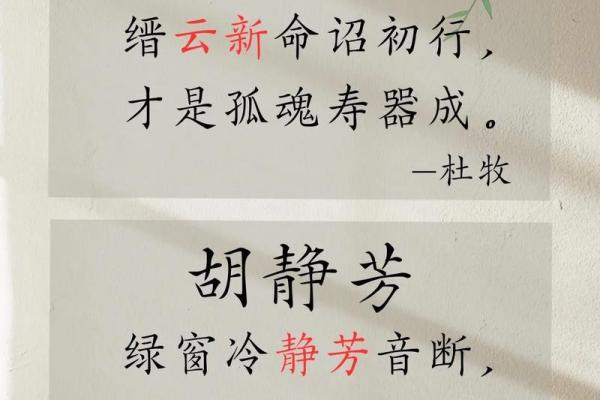 缙云新命诏初行，
才是孤魂寿器成。
—杜牧
胡静芳
绿窗冷静芳音断，